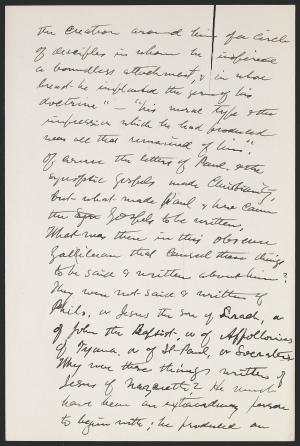 the creation around him of a circle
of disciples in whom he inspired
a boundless attachment, & in whose
breast he implanted the germ of his
doctrine" — "his moral type & the
impression which he had produced
was all that remained of him".
Of course the letters of Paul, & the
synoptic Gospels made Christianity,
but what made Paul & how came
the Gospels to be written.
What was there in this obscure
Gallilean that caused these things
to be said & written about him?
They were not said & written of
Philo, or Jesus the son of Sirach, or
of John the Baptist, or of Appollonius
of Tyana, or of St Paul, or Socrates
Why were these things written of
Jesus of Nazareth? He must
have been an extraordinary person
to begin with; he produced an